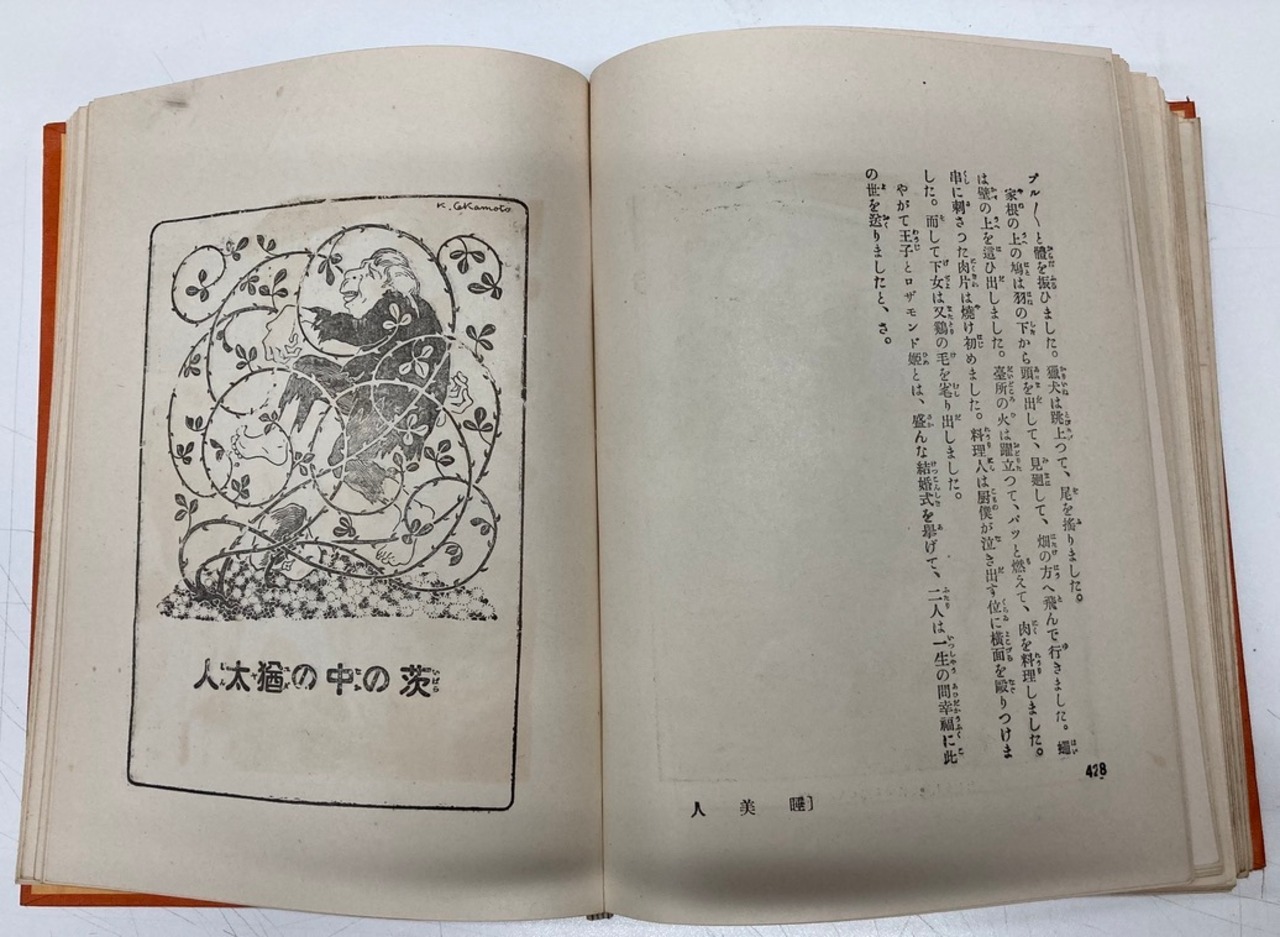 ブル〳〵と體を振ひました。獵犬は跳上つて、尾を搖りました。
家根の上の鳩は羽の下から頭を出して、見廻して、畑の方へ飛んで行きました。蠅
は壁の上を這ひ出しました。臺所の火は躍立つて、パツと燃えて、肉を料理しました。
串に刺さつた肉片は燒け初めました。料理人は厨僕が泣き出す位に橫面を毆りつけま
した。而して下女は又鷄の毛を毟り出しました。
やがて王子とロザモンド姬とは、盛んな結婚式を擧げて、二人は一生の間幸福に此
の世を送りましたと、さ。
428
人美睡
K. Okamoto
人太猶の中の茨